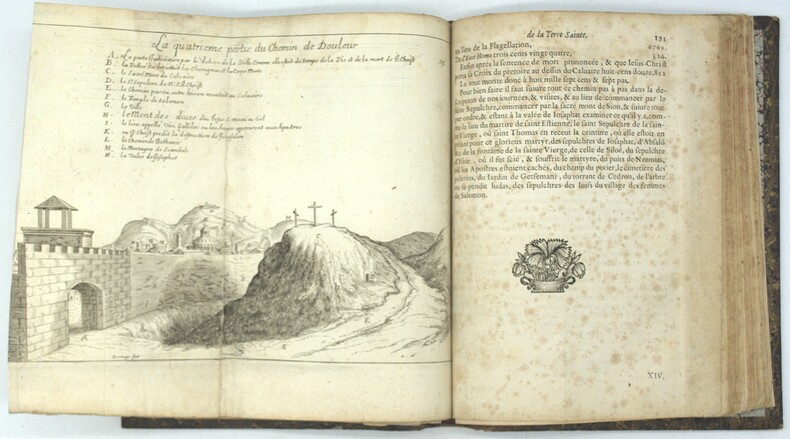 La quatrieme partie du Chemin de Douleur
A. La porte Iudiciaire par le dehors de la Ville Comme elle estoit du temps de la Vie et de la mort de I. Christ
B. La Vallée
C. Le Saint Mont de Calvaire
D. Le St Sepulcre de N. S. I. Christ
E. Le Chemin par ou notre Sauveur montoit au Calvaire
F. Le Temple de Salomon
G. La Ville
H. le Mont des olives
I. le lieu appellé Viri Galilei
K. ou I. Christ predit la destruction de Ierusalem
L. le Chemin de Bethanie
M. la Montagne de Scandale
N. la Valée de Iosaphat
de la Terre Sainte. 191
au lieu de la Flagellation, 6769.
De l'Ecce Homo trois cens vingt quatre, 324.
Enfin après la sentence de mort prononcée, & que Iesus-Christ
porta sa Croix du pretoire au dessus du Caluaire huit-cens douze, 812
Le tout monte donc à huit mille sept cens & sept pas.
Pour bien faire il faut suiure tout ce chemin pas à pas dans la de-
scription de nos iournées, & visites, & au lieu de commencer par le
saint Sepulchre, commencer par la sacré mont de Sion, & suiure tout
par ordre, & estant à la valée de Iosaphat examiner ce qu'il y a, com-
me le lieu du martire de saint Estienne, le saint Sepulchre de la sain-
te Vierge, où saint Thomas en receut la ceinture, où elle estoit en
priant pour ce glorieux martyr, des sepulchres de Iosaphat, d'Absalõ
&c. de la fontaine de la sainte Vierge, de celle de Siloé, du sepulchre
d'Isaïe, où il fut scié, & souffrit le martyre, du puits de Neemias,
où les Apostres estoient cachés, du champ du potier, le cimetiere des
pelerins, du Iardin de Getsemani, du torrant de Cedron, de l'arbre
où se pendit Iudas, des sepulchres des Iuifs du village des femmes
de Salomon.
XIV.